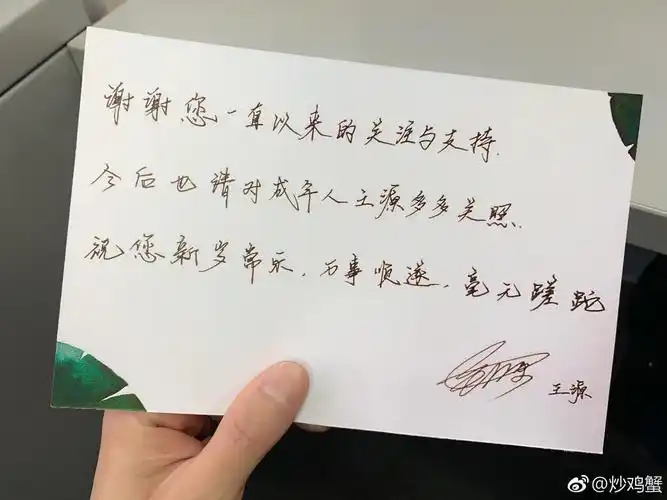 谢谢您一直以来的关注与支持.
今后也请对成年人王源多多关照.
祝您新岁常乐,万事顺遂,毫无蹉跎
王源
@炒鸡蟹